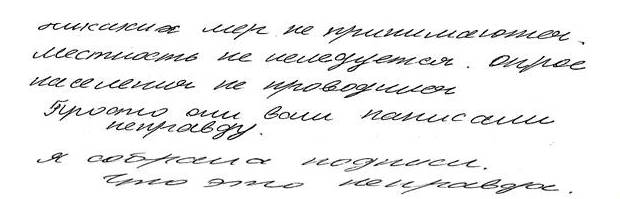 никаких мер не принимаются.
местность не иследуется. Опрос
населения не проводился
Просто они вам написали
неправду.
я собрала подписи.
Что это неправда.